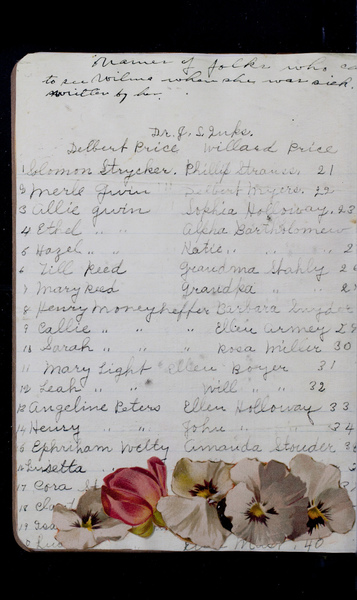 Names of folks who ca
to see Wilma when she was sick.
written by her.
Dr. J. S. Inks.
Delbert Price Willard Price
1 Solomon Strycker. Phillip Strauss. 21
2 Merle Gwin " Delbert Myers. 22
3 Allie Gwin Sophia Holloway. 23
4 Ethel " " Alpha Bartholomew
5 Hazel " " Katie " " 2
6 Till Kied Grandma Stahly 2
7 Mary Kied Grandpa " 2
8 Henry Moneyheffer Barbara Snyder
9 Callie " " Ellen Armey 29
10 Sarah " " " Rosa Miller 30
11 Mary Light Ellen Boyer 31
12 Leah " " Will " " 32
13 Angeline Peters Ellen Holloway 33
14 Henry " " John " " 34
15 Ephriham Welty Amanda Stouder 3
16 Lusetta
17 Cora St
18 Cl
19 Isa
40